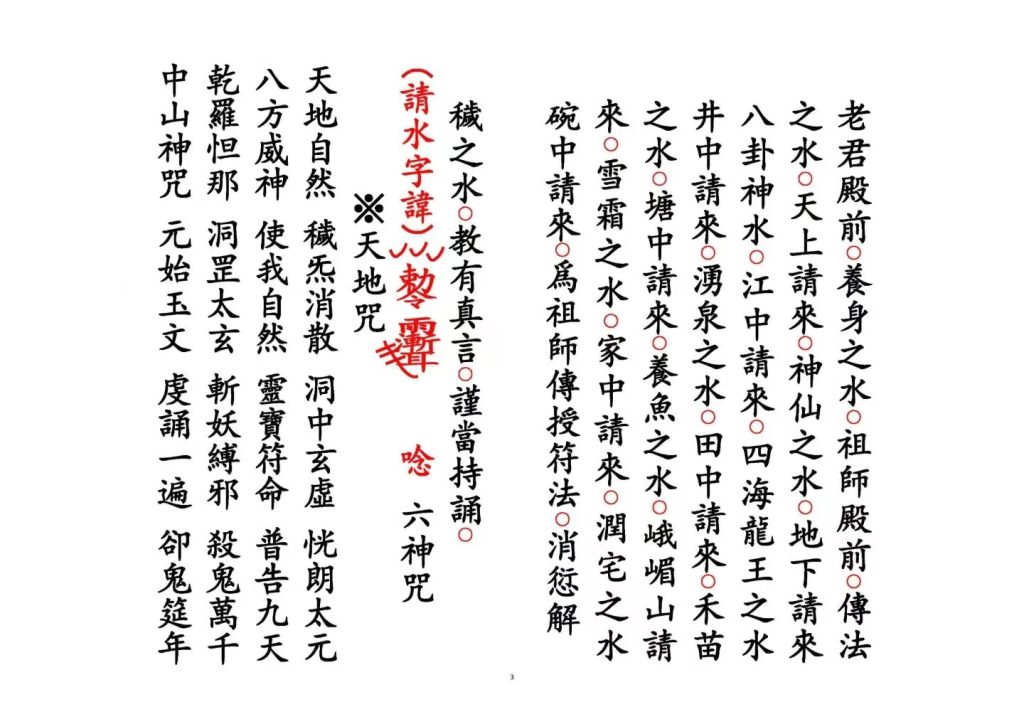 老君殿前○養身之水○祖師殿前○傳法
之水○天上請來○神仙之水○地下請來
八卦神水○江中請來○四海龍王之水
井中請來○湧泉之水○田中請來○禾苗
之水○塘中請來○養魚之水○峨嵋山請
來○雪霜之水○家中請來○潤宅之水
碗中請來○爲祖師傳授符法○消愆解
穢之水○教有真言○謹當持誦○
(請水字諱) 勅 唸 六神咒
※天地咒
天地自然 穢炁消散 洞中玄虛 恍朗太元
八方威神 使我自然 靈寶符命 普告九天
乾羅怛那 洞罡太玄 斬妖縛邪 殺鬼萬千
中山神咒 元始玉文 虔誦一遍 卻鬼筵年
3